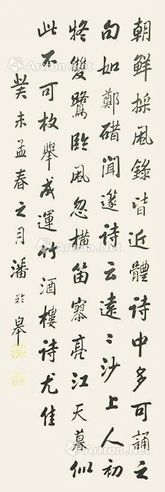 朝鮮採風錄皆近體詩中多可誦之
句如鄭碏聞邃詩云遠〻沙上人初
將雙鷺臨風忽橫笛寥亮江天暮似
此不可枚舉成運竹酒樓詩尤佳
癸未孟春之月潘齡皋
Artron.Net